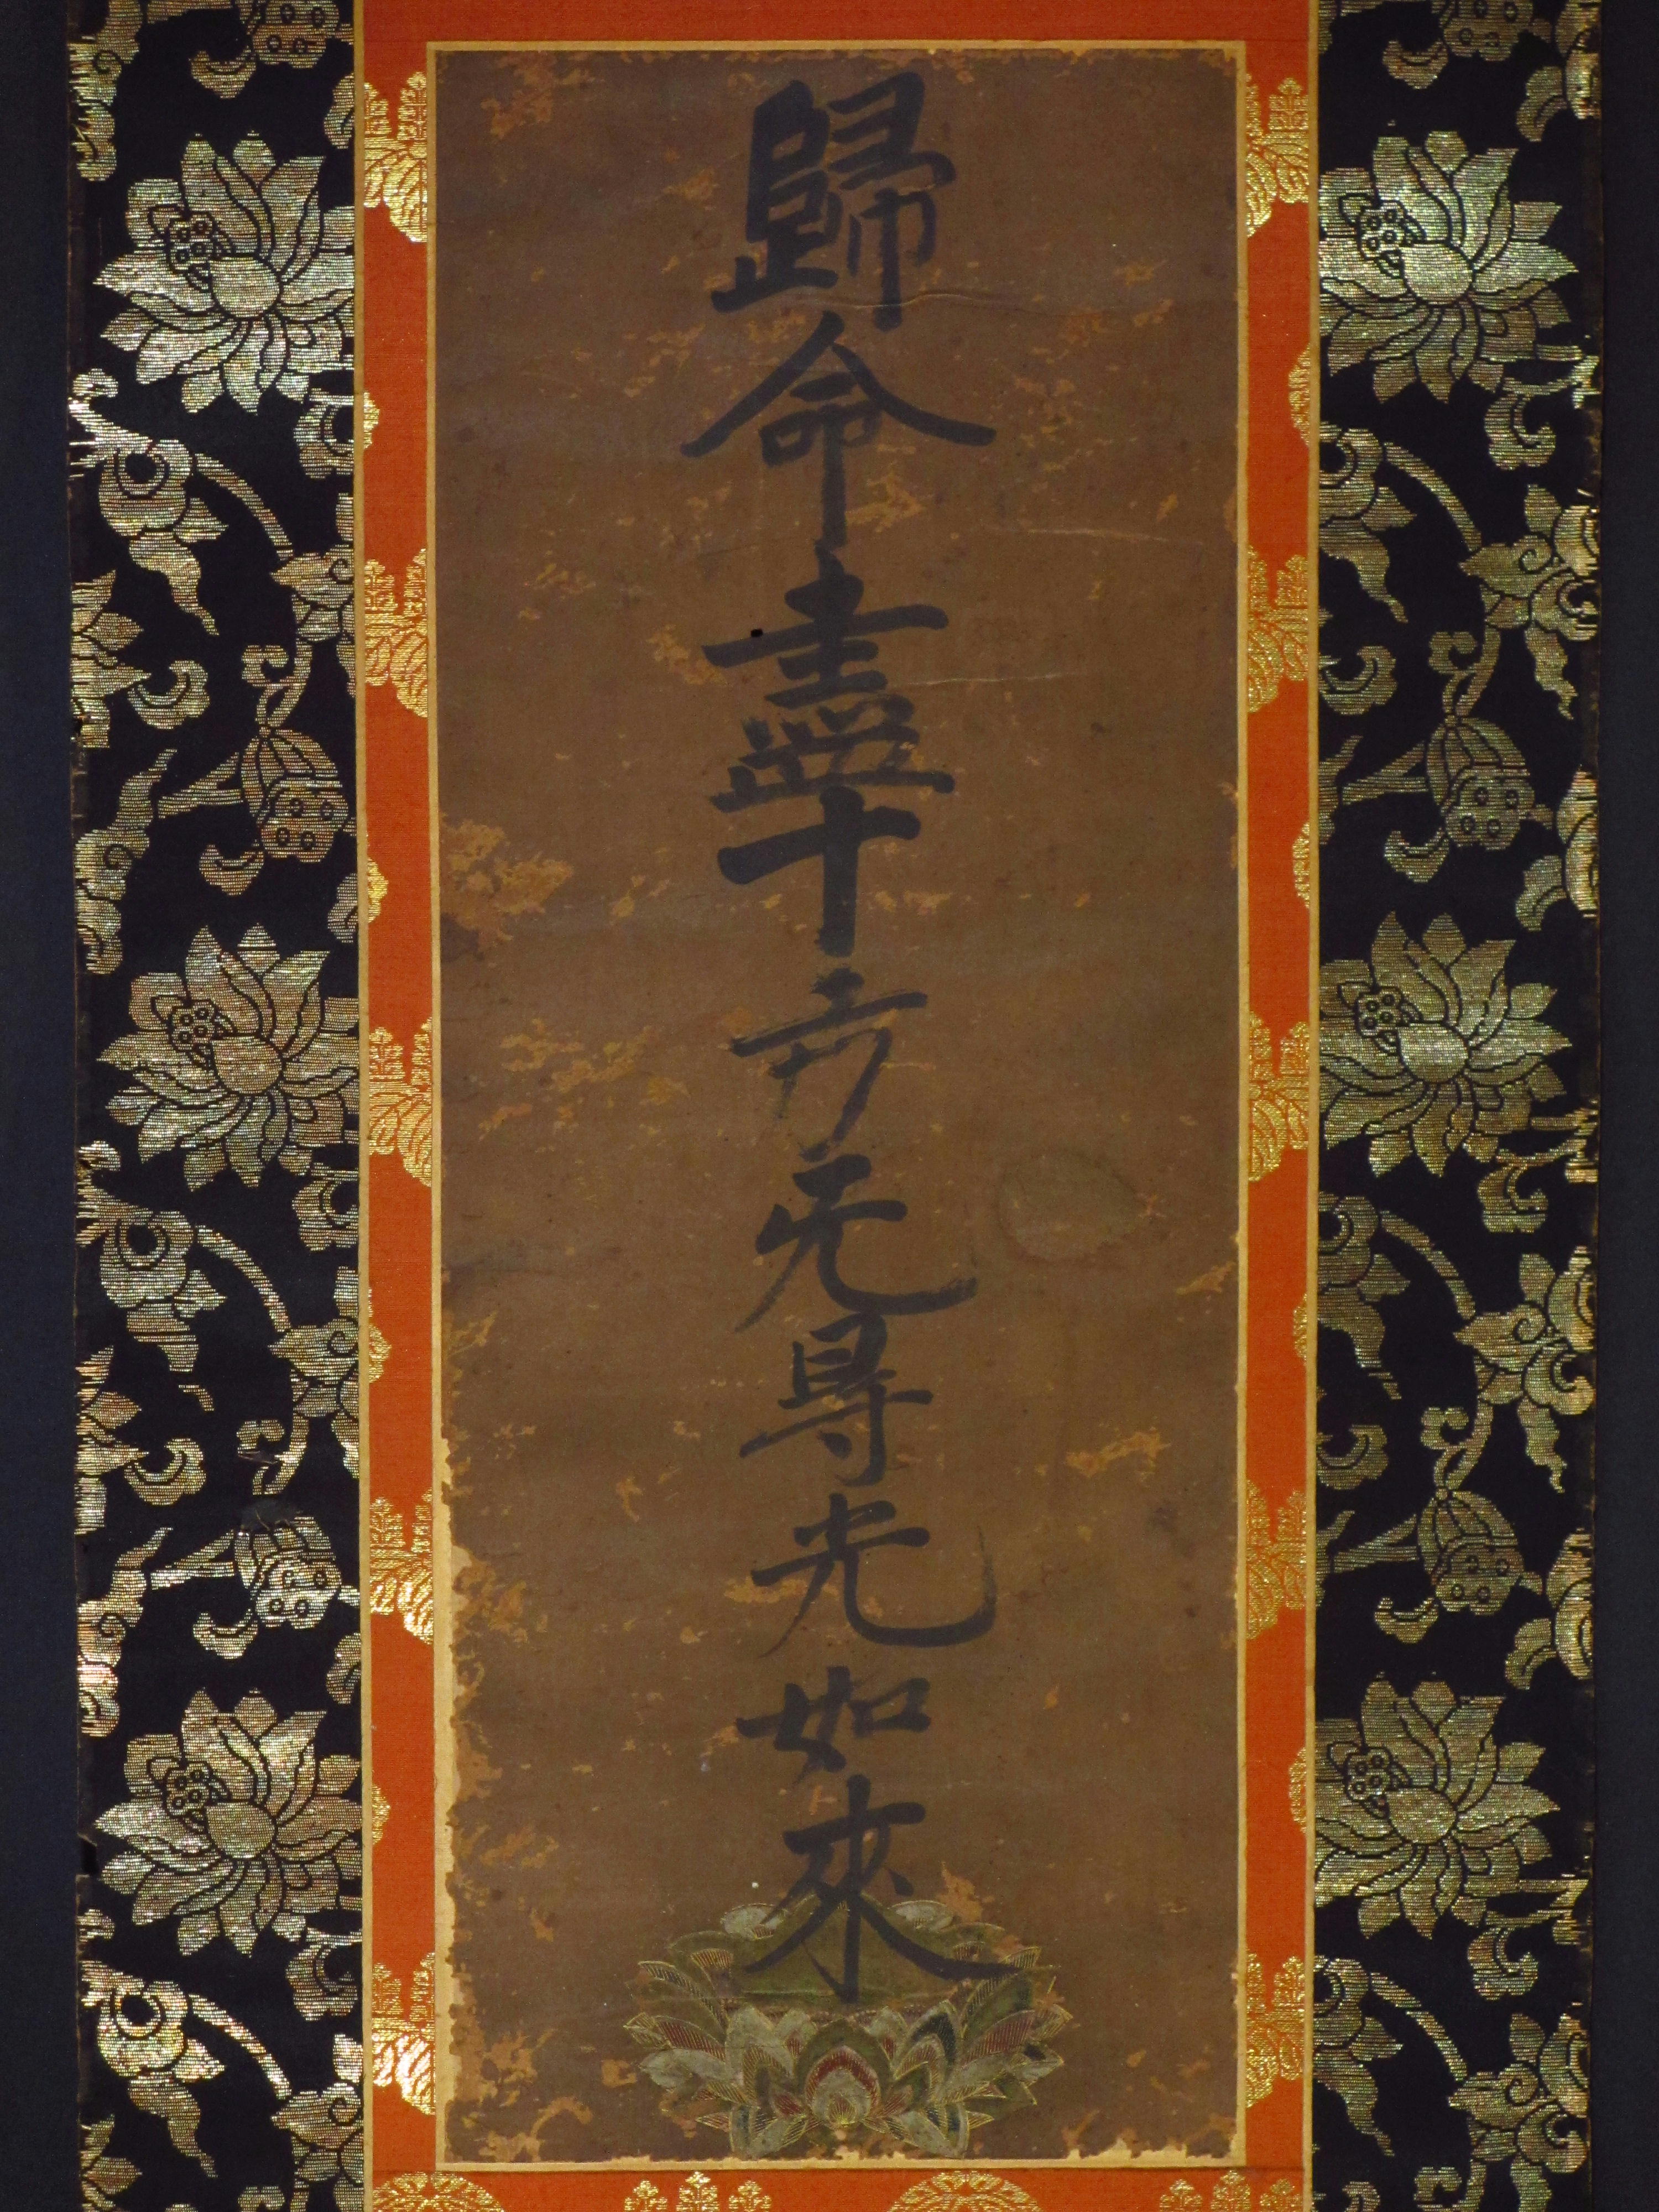 歸命盡十方无㝵光如來